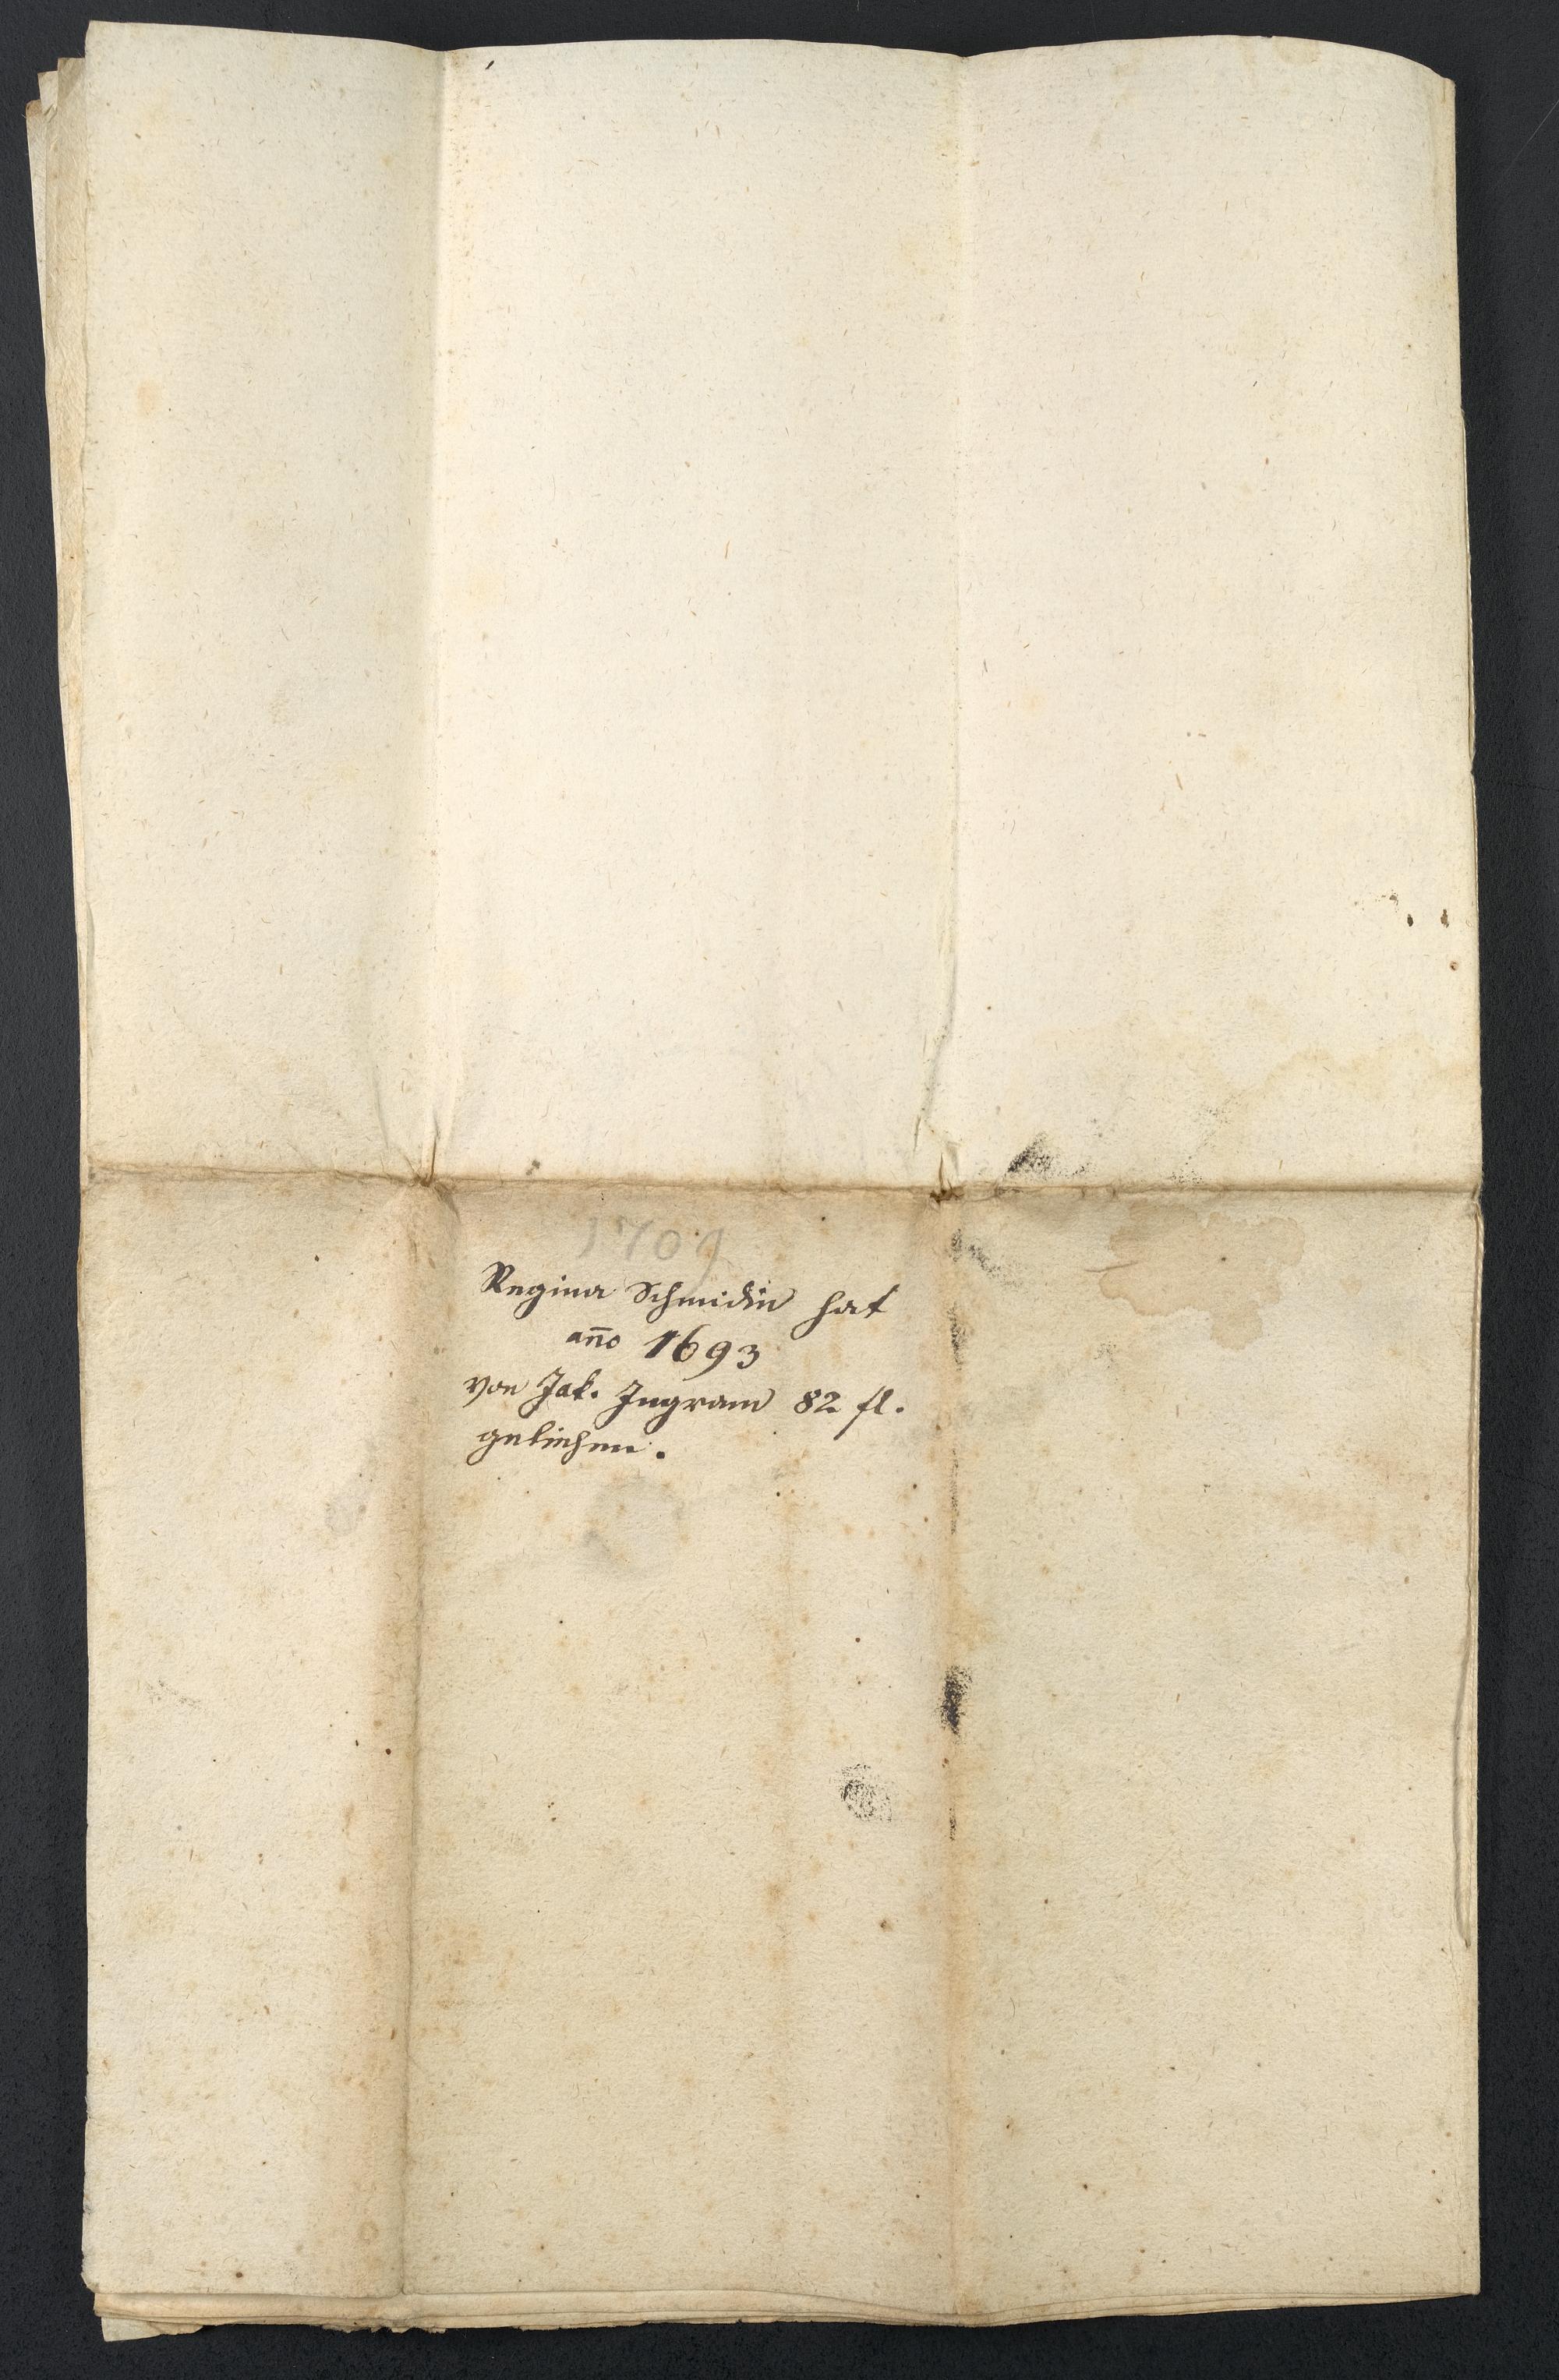 1709
Regina Schmidin hat
año 1693
von Jak. Ingram 82 fl.
geliehen.